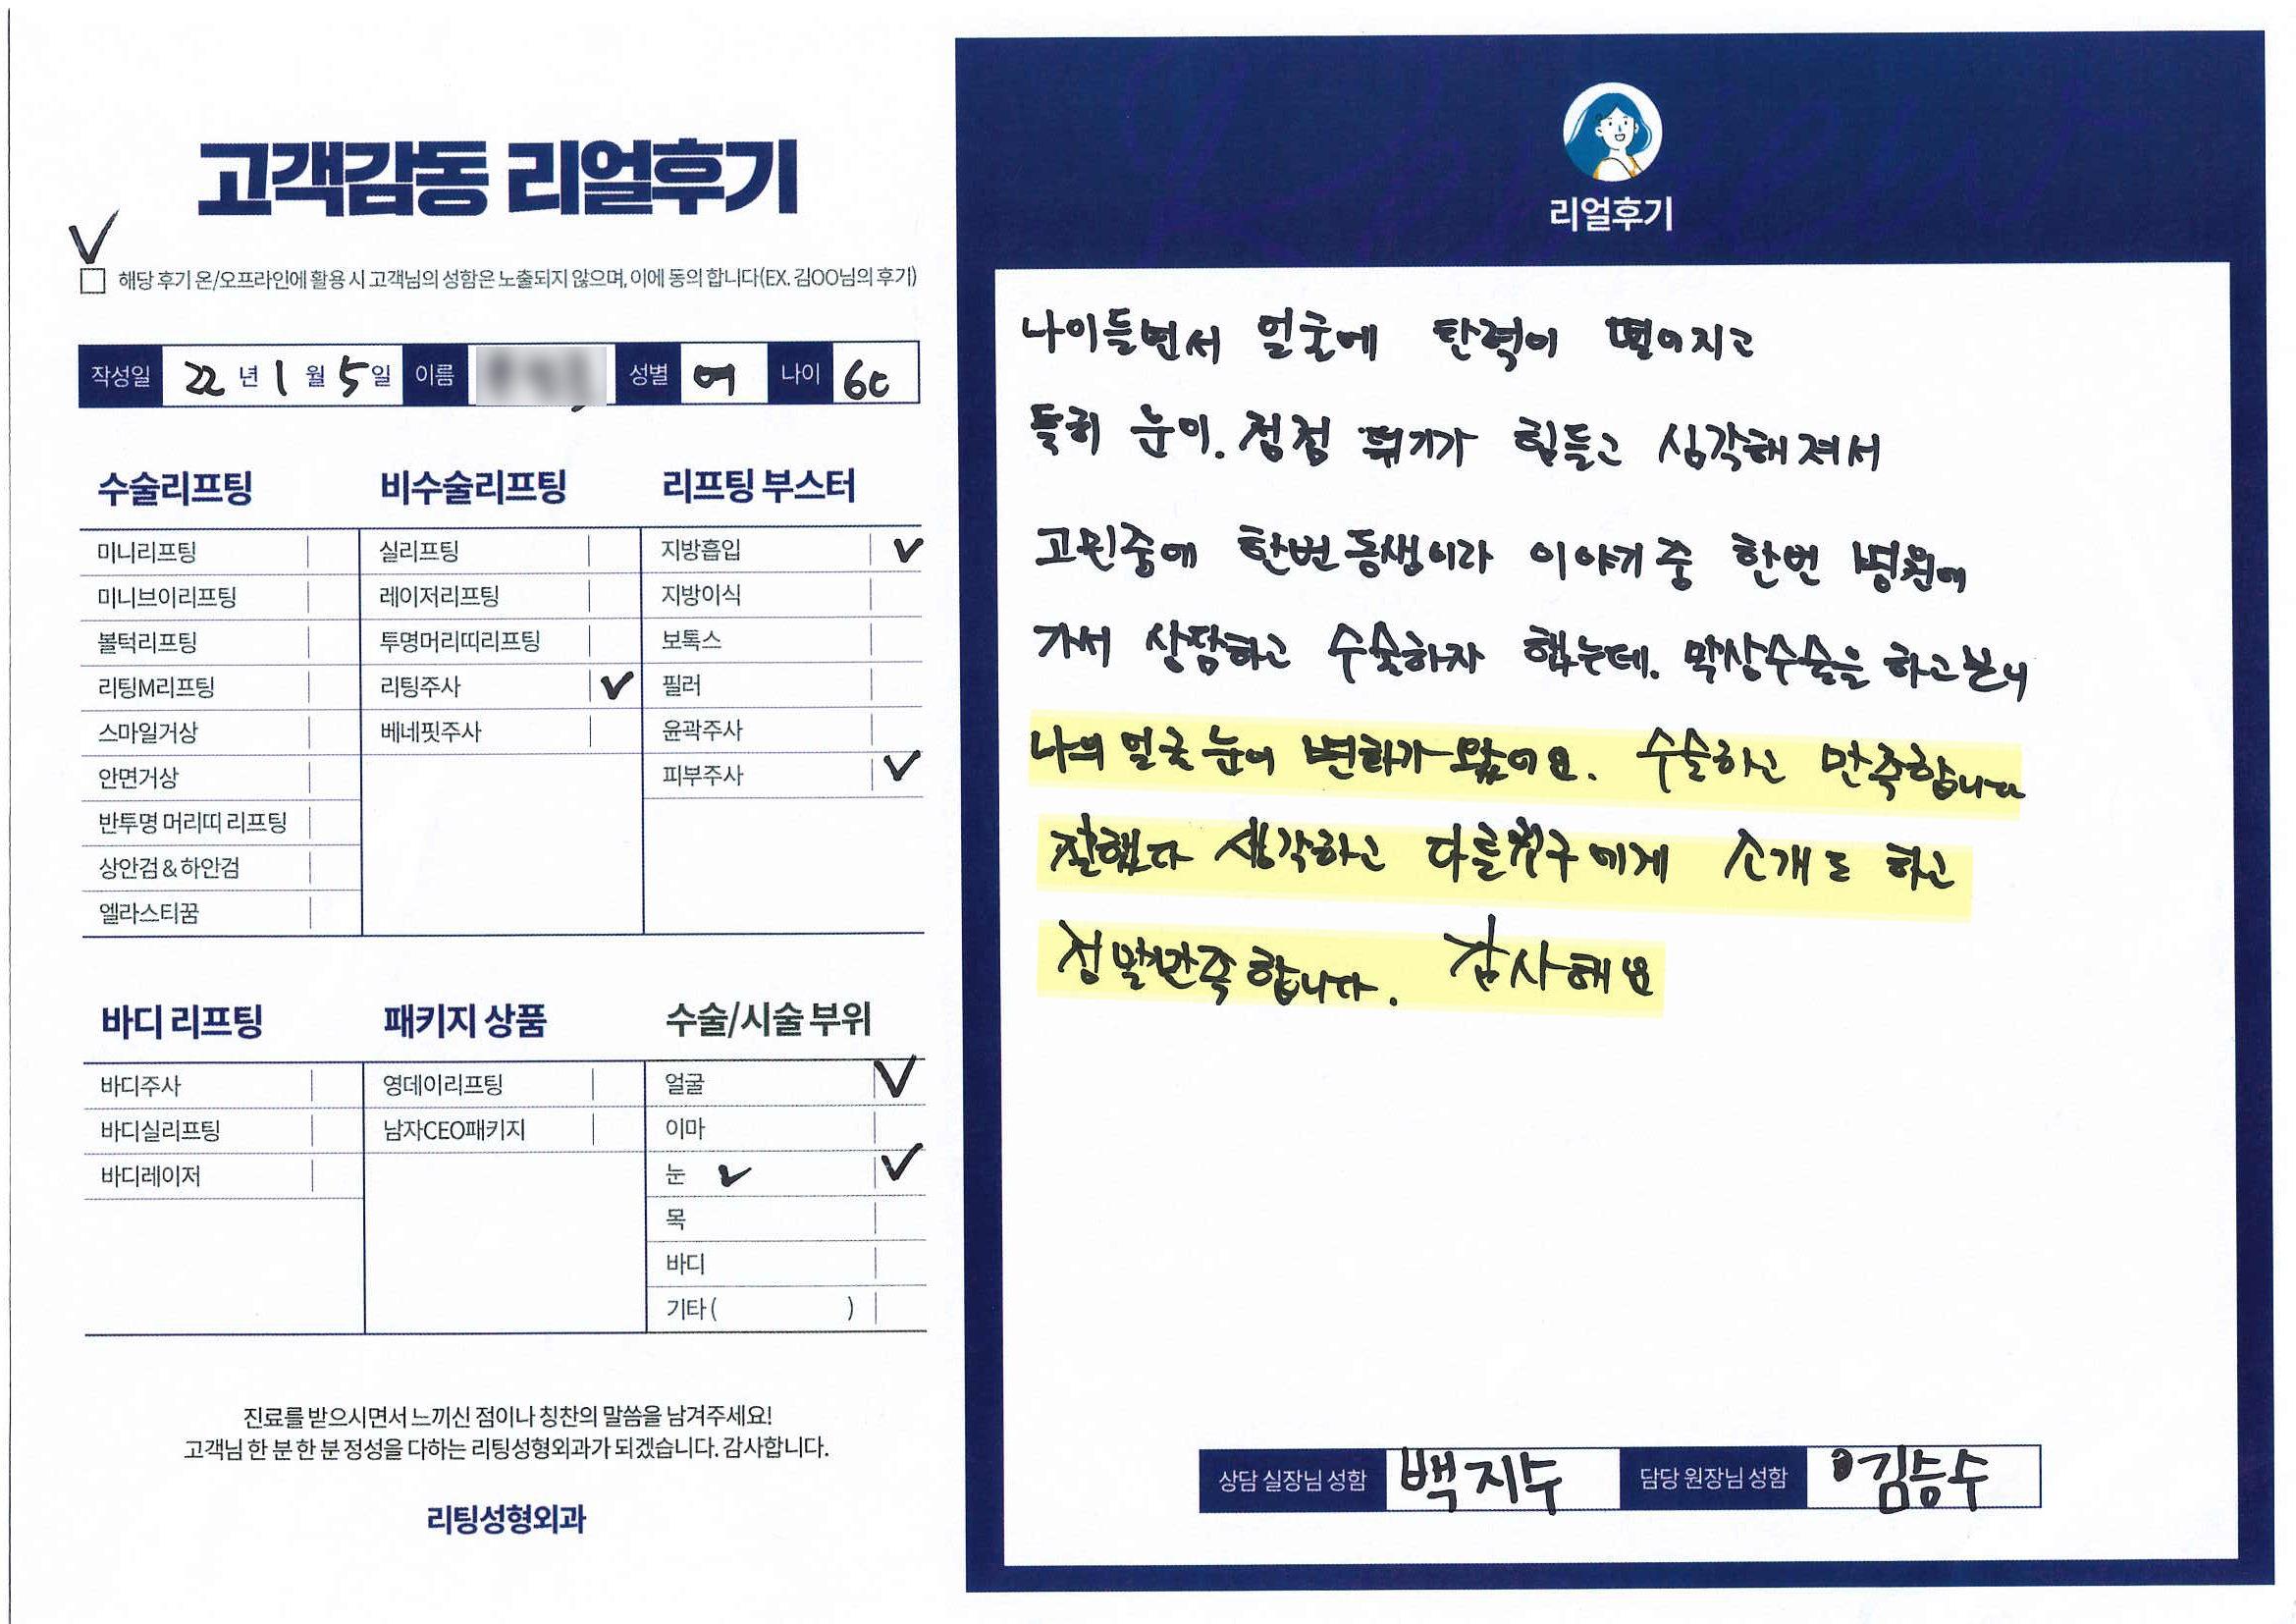 고객감동 리얼후기
해당 후기 온/오프라인에 활용 시 고객님의 성함은 노출되지 않으며, 이에 동의 합니다(EX. 김OO님의 후기)
작성일 22 년 1 월 5 일 이름 성별 여 나이 60
수술리프팅 비수술리프팅 리프팅 부스터
미니리프팅 실리프팅 지방흡입 ✓
미니브이리프팅 레이저리프팅 지방이식
볼턱리프팅 투명머리띠리프팅 보톡스
리팅M리프팅 리팅주사 ✓ 필러
스마일거상 베네핏주사 윤곽주사
안면거상 피부주사 ✓
반투명 머리띠 리프팅
상안검&하안검
엘라스티꿈
바디 리프팅 패키지 상품 수술/시술 부위
바디주사 영데이리프팅 얼굴 ✓
바디실리프팅 남자CEO패키지 이마
바디레이저 눈 ✓ ✓
목
바디
기타 ( )
진료를 받으시면서 느끼신 점이나 칭찬의 말씀을 남겨주세요!
고객님 한 분 한 분 정성을 다하는 리팅성형외과가 되겠습니다. 감사합니다.
리팅성형외과
리얼후기
나이들면서 얼굴에 탄력이 떨어지고
특히 눈이. 점점 뜨기가 힘들고 심각해져서
고민중에 한번 동생이라 이야기 중 한번 병원에
가서 상담하고 수술하자 했는데. 막상수술을 하고보니
나의 얼굴 눈이 변화가 왔어요. 수술하고 만족합니다
잘했다 생각하고 다른친구에게 소개도 하고
정말만족합니다. 감사해요
상담 실장님 성함 백지수 담당 원장님 성함 김승수